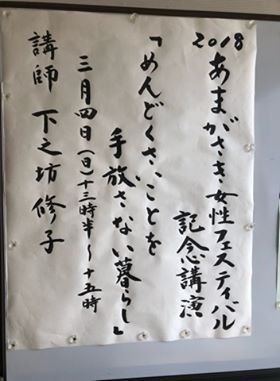 2018
あまがさき女性フェスティバル
記念講演
「めんどくさいことを
手放さない暮らし」
三月四日(日)十三時半〜十五時
講師 下之坊修子